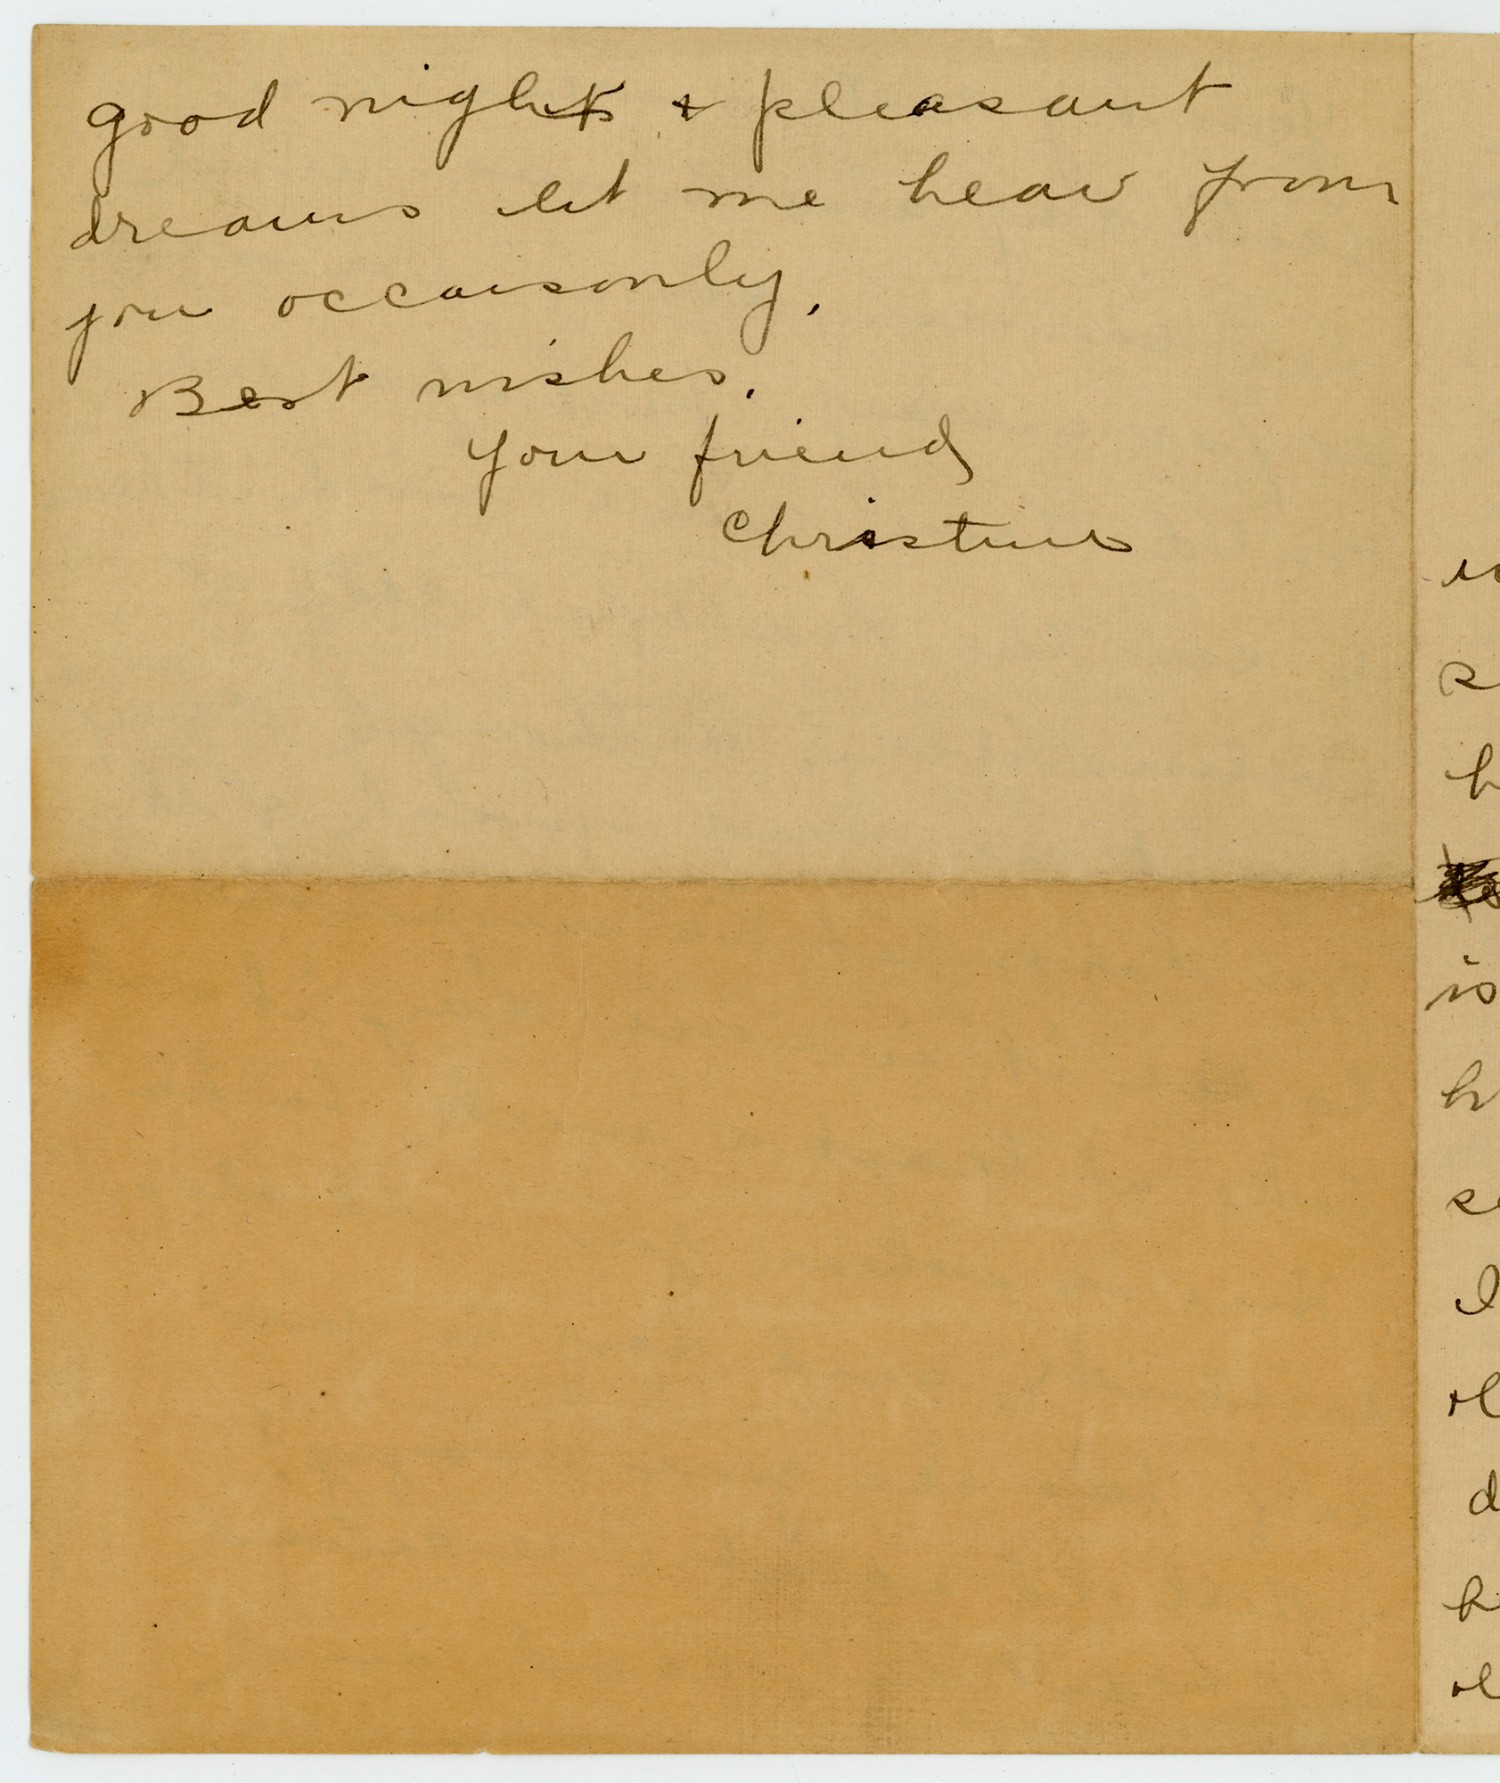 good night & pleasant
dreams let me hear from
you occaisonly.
Best wishes.
Your friend
Christine
is
h